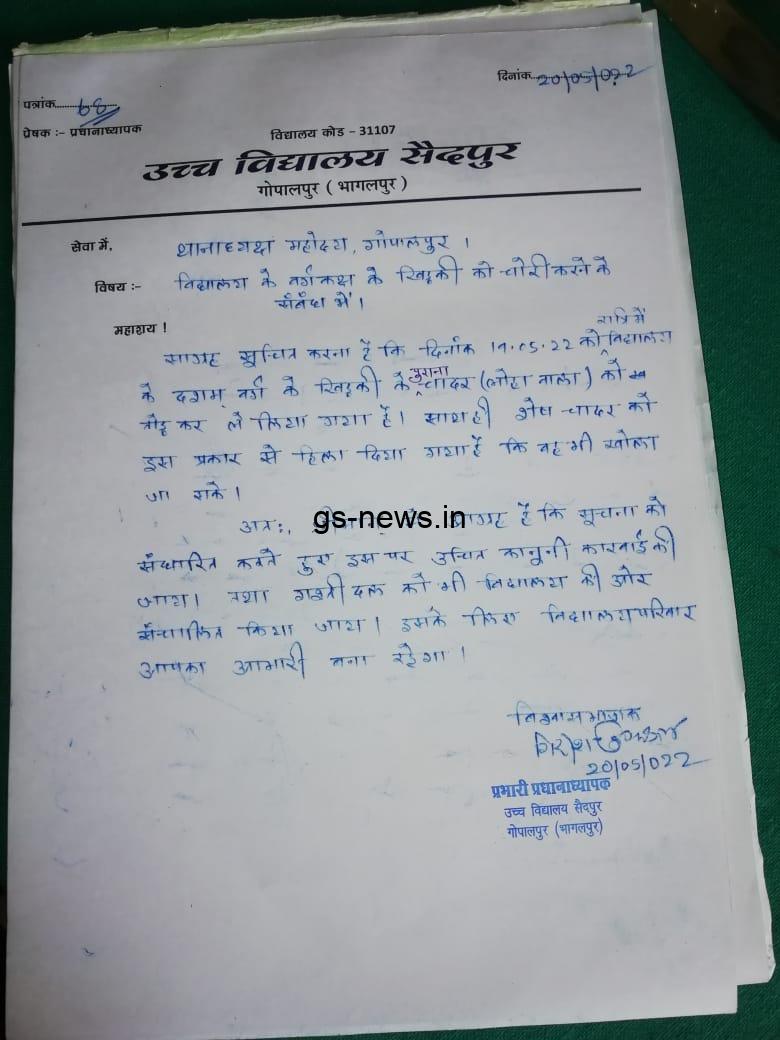 दिनांक.... 20/05/022
पत्रांक............ 68
प्रेषक :- प्रधानाध्यापक
विद्यालय कोड - 31107
उच्च विद्यालय सैदपुर
गोपालपुर ( भागलपुर )
सेवा में, थानाध्यक्ष महोदय, गोपालपुर ।
विषय :- विद्यालय के वर्गकक्ष के खिड़की को चोरी करने के
संबंध में ।
महाशय !
रात्रि में
साग्रह सूचित करना है कि दिनांक 19.05.22 को विद्यालय
पुराना
के दशम् वर्ग के खिड़की के चादर (लोहा वाला) को
तोड़ कर ले लिया गया है। साथ ही शेष चादर को
इस प्रकार से हिला दिया गया है कि वह भी खोला
जा सके ।
अतः, आग्रह है कि सूचना को
gs-news.in
संधारित करते हुए इस पर उचित कानूनी कारवाई की
जाय। तथा गश्ती दल को भी विद्यालय की ओर
संचालित किया जाय। इसके लिए विद्यालय परिवार
आपका आभारी बना रहेगा ।
विश्वासभाजक
20/05/022
प्रभारी प्रधानाध्यापक
उच्च विद्यालय सैदपुर
गोपालपुर (भागलपुर)